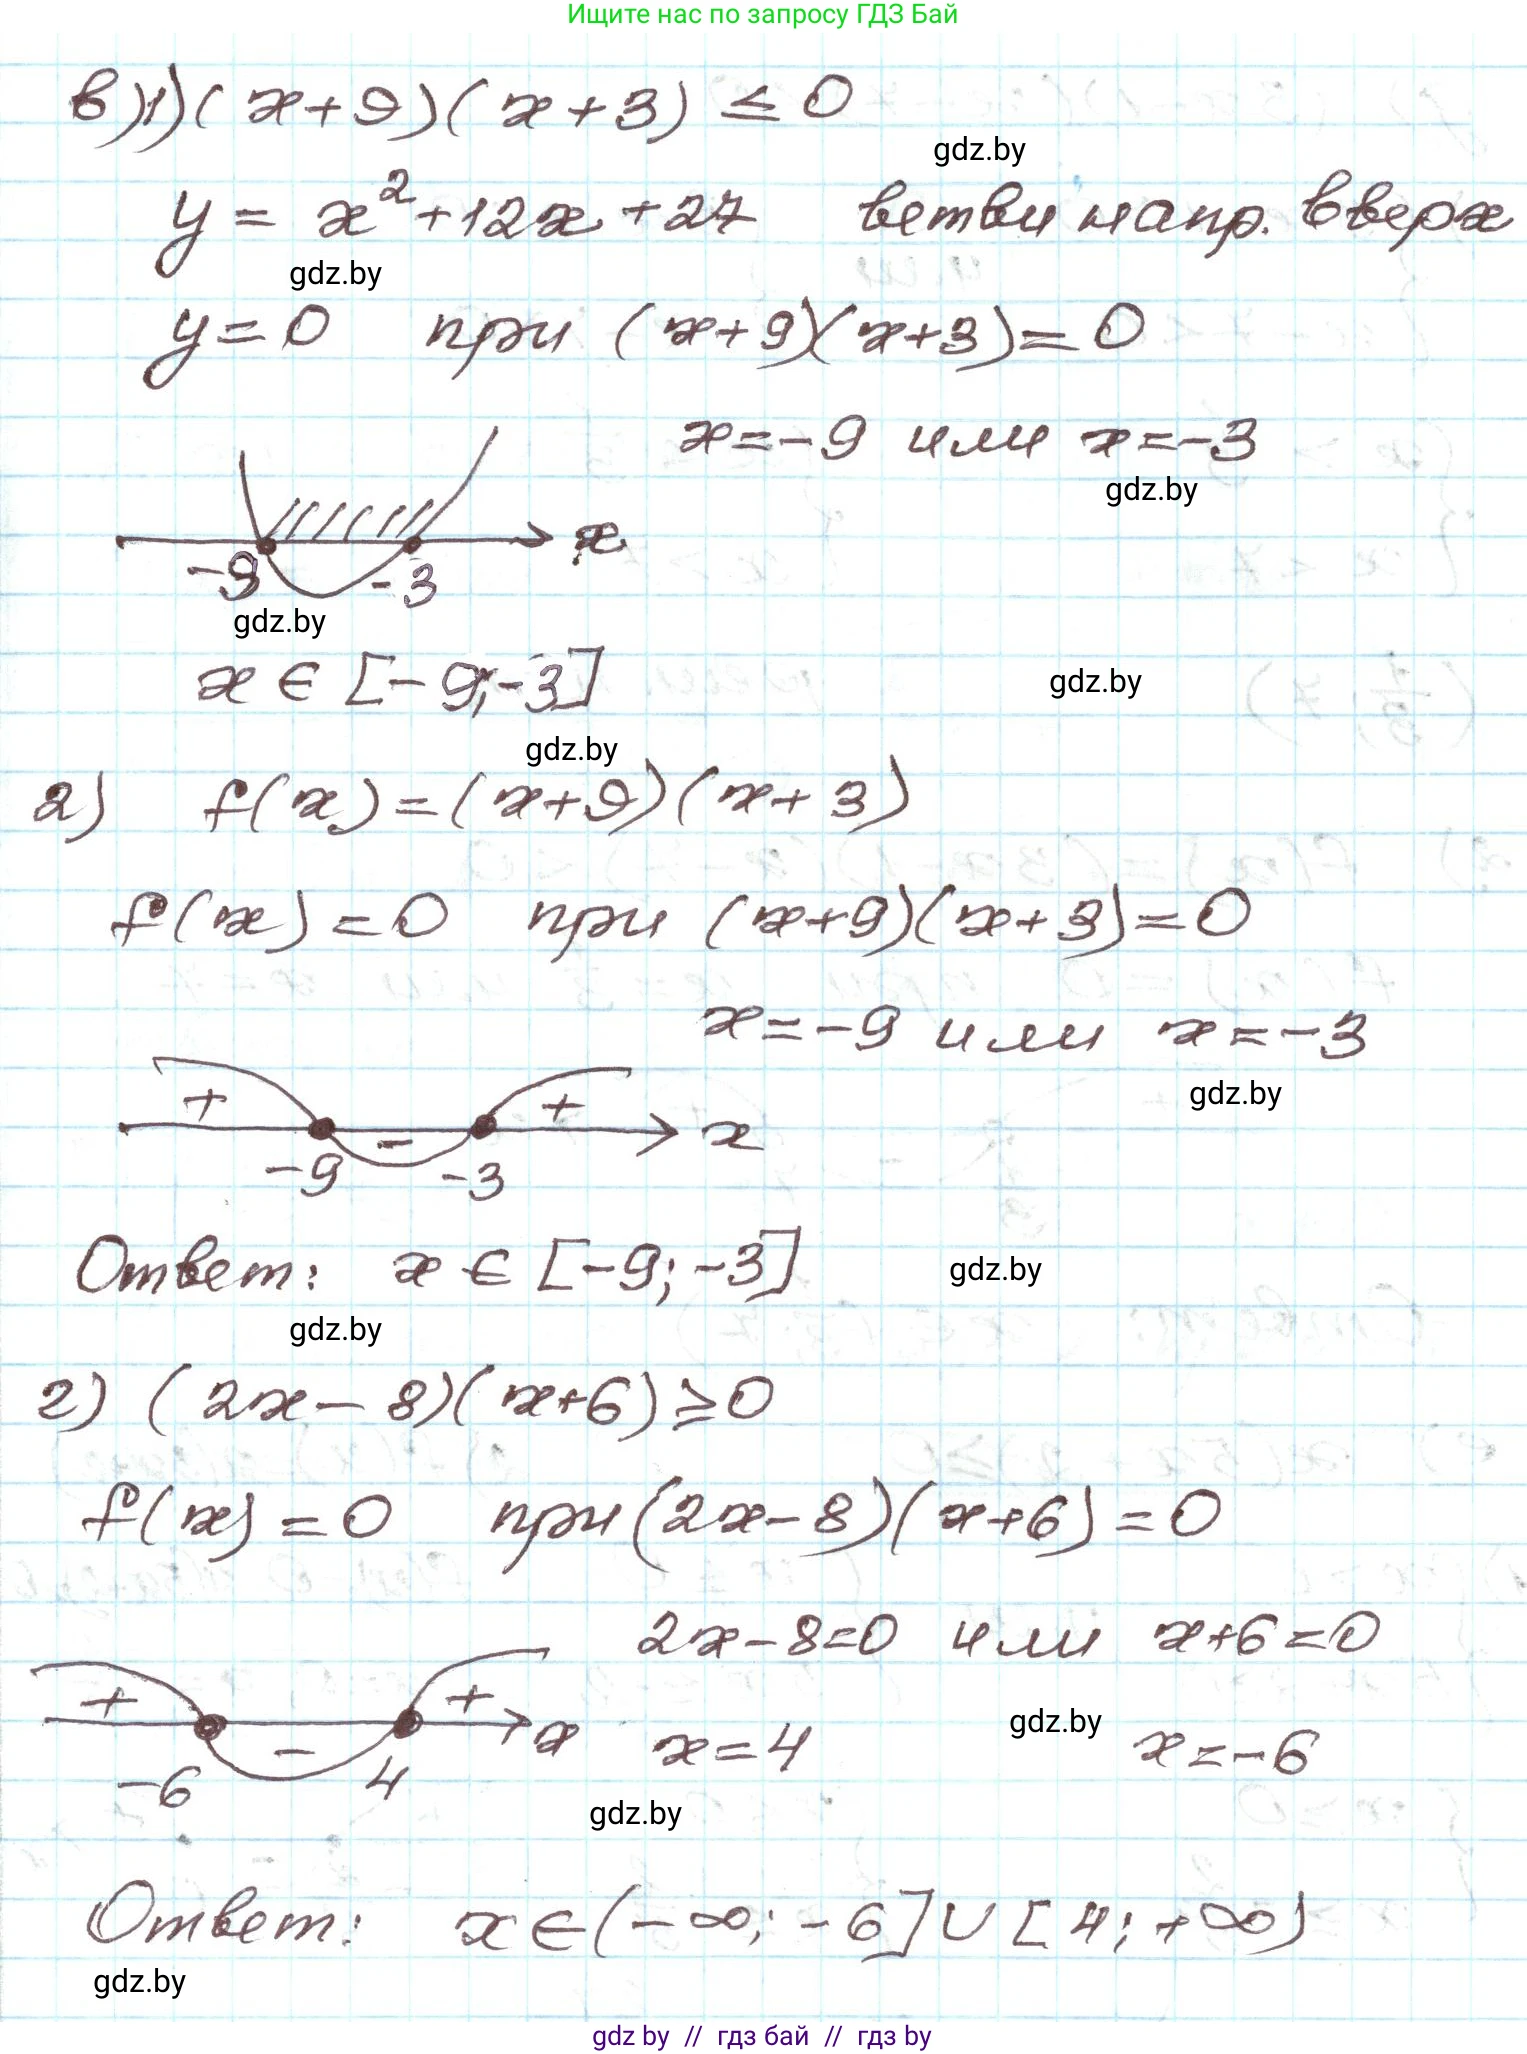 Ищите нас по запросу ГДЗ Бай
в) 1) (x+9)(x+3) ≤ 0
gdz.by
y = x² + 12x + 27 ветви напр. вверх
gdz.by
y = 0 при (x+9)(x+3) = 0
x = -9 или x = -3
gdz.by
x
-9 -3
gdz.by
x ∈ [-9; -3]
gdz.by
gdz.by
2) f(x) = (x+9)(x+3)
f(x) = 0 при (x+9)(x+3) = 0
x = -9 или x = -3
gdz.by
+ - + x
-9 -3
Ответ: x ∈ [-9; -3]
gdz.by
gdz.by
г) (2x-8)(x+6) ≥ 0
f(x) = 0 при (2x-8)(x+6) = 0
2x-8=0 или x+6=0
+ - + x
x = 4 x = -6
gdz.by
-6 4
gdz.by
Ответ: x ∈ (-∞; -6] ∪ [4; +∞)
gdz.by
gdz by // гдз бай // гдз by